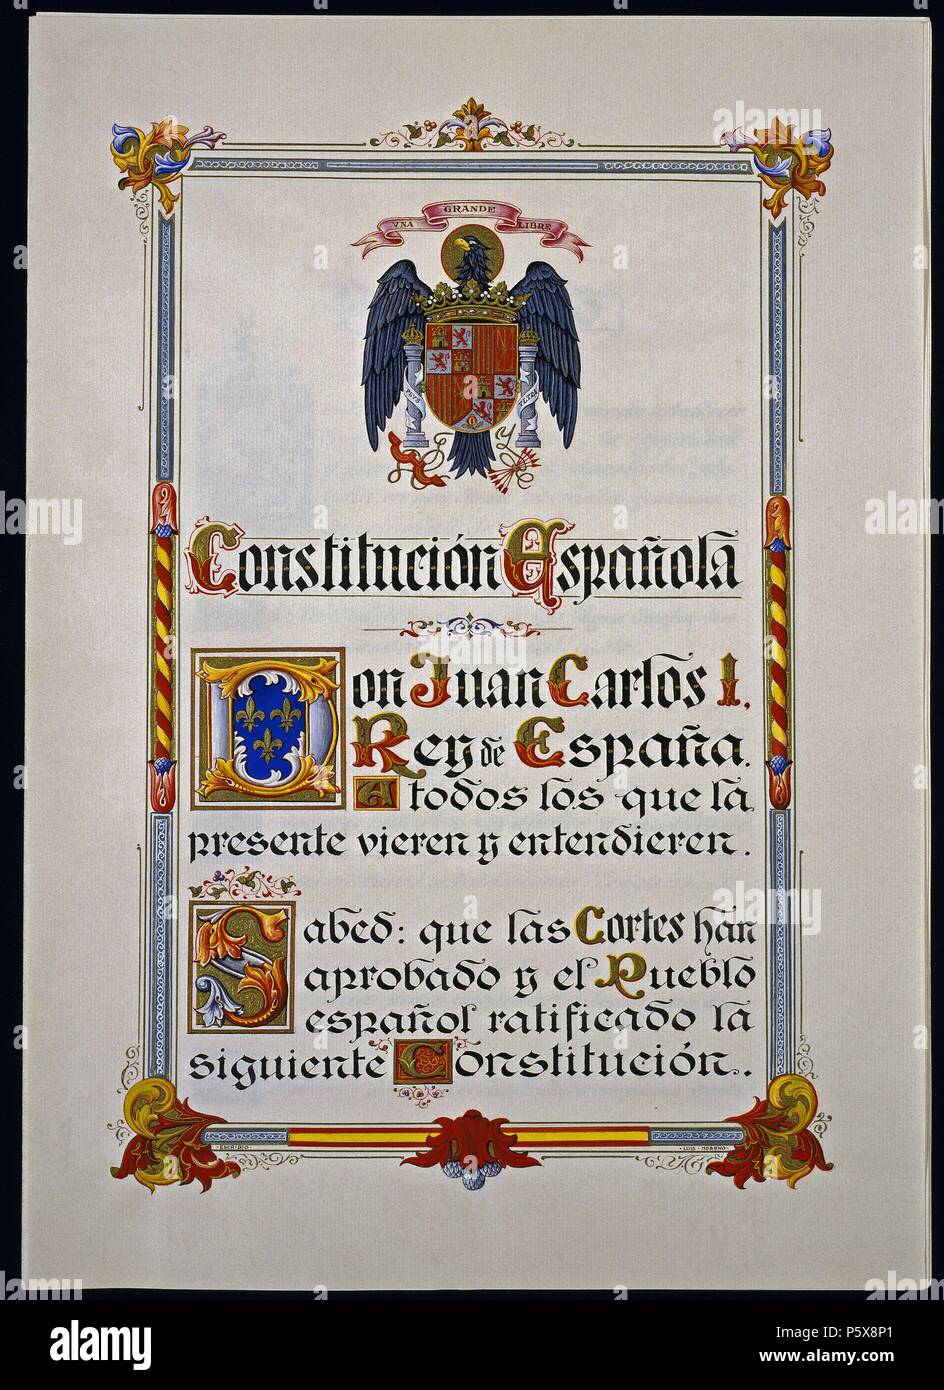 VNA GRANDE LIBRE
PLVS VLTRA
Constitución Española
Don Juan Carlos I,
Rey de España.
A todos los que la
presente vieren y entendieren.
Sabed: que las Cortes han
aprobado y el Pueblo
español ratificado la
siguiente Constitución.
ESCRIBIO · LUIS · MORENO ·
alamy
Image ID: P5X8P1
www.alamy.com